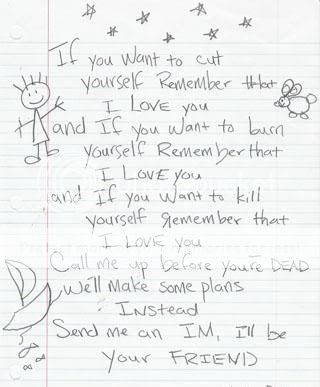 If you want to cut
yourself Remember that
I LOVE you
and If you want to burn
yourself Remember that
I LOVE you
and If you want to kill
yourself remember that
I LOVE you
Call me up before you're DEAD
we'll make some plans
Instead
Send me an IM, I'll be
your FRIEND